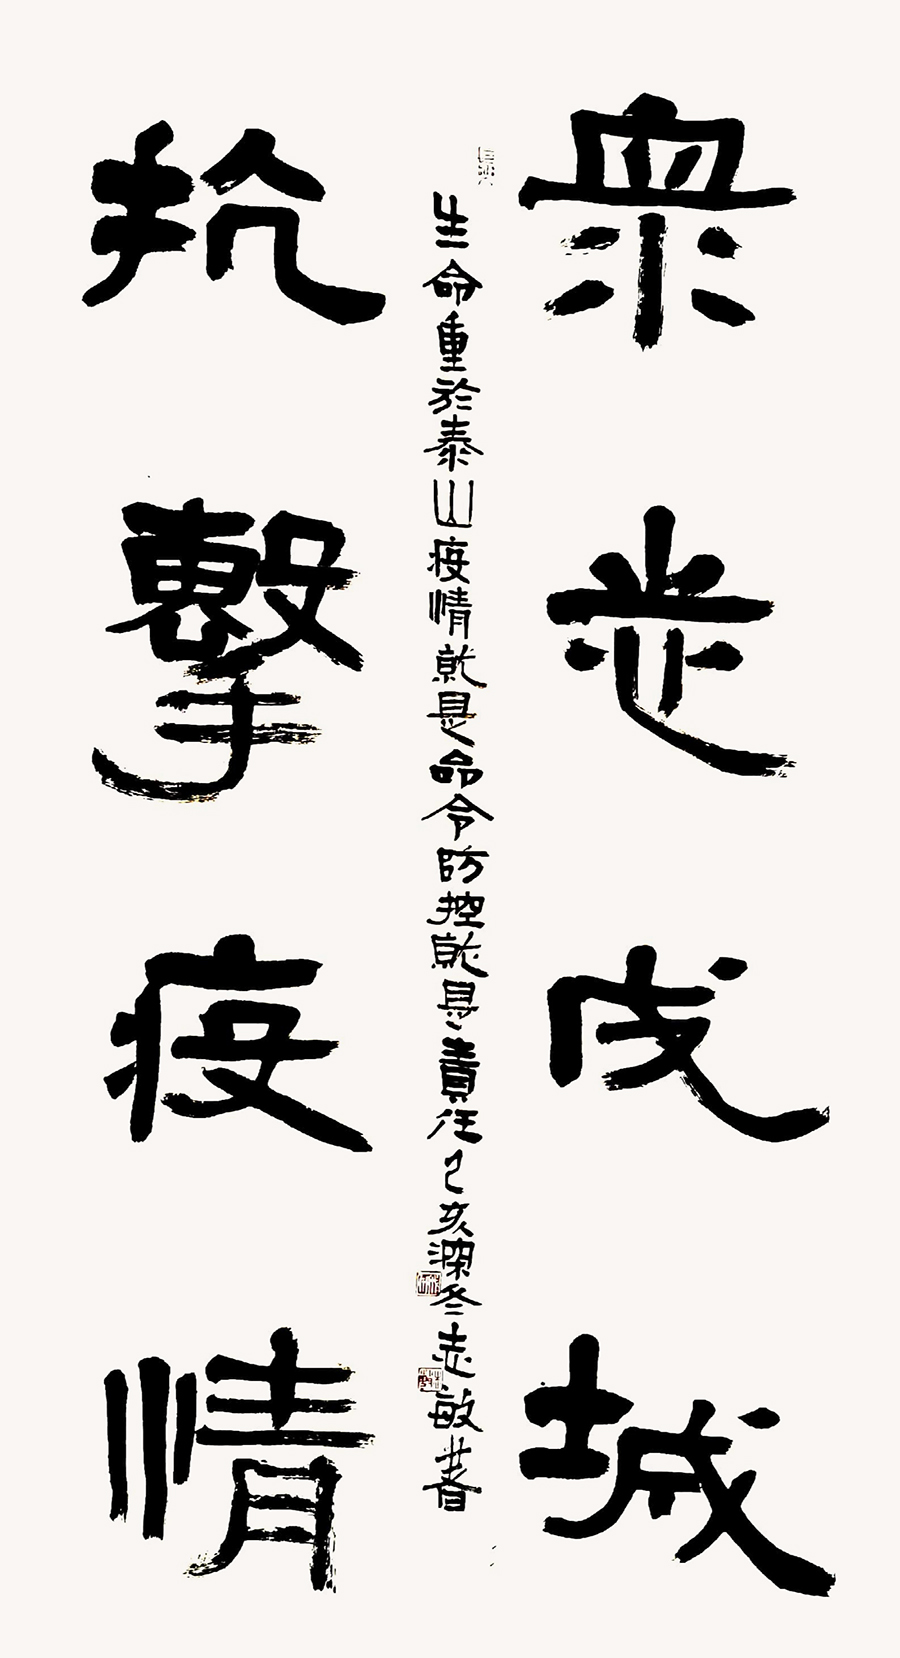 衆志成城
生命重於泰山疫情就是命令防控就是責任己亥深冬志敏書
抗擊疫情